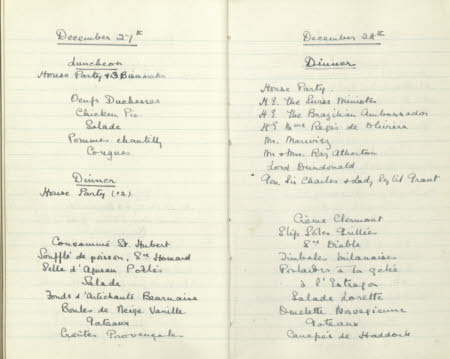 December 27th
Luncheon
House Party + 3
Oeufs Duchesses
Chicken Pie
Salade
Pommes chantilly
Dinner
House Party (+2)
Consommé St. Hubert
Soufflé de poisson, Sce Homard
Selle d'Agneau Poêlés
Salade
Fonds d'Artichauts Bearnaise
Boules de Neige Vanille
Gateaux
Croûtes Provençale
December 28th
Dinner
House Party.
H.E. The Swiss Minister
H.E. The Brazilian Ambassador
H.E. Mme Regis de Oliviera
Mr.
Mr + Mrs. Ray Atherton
Lord Dundonald
Hon. Sir Charles + Lady Sybil Grant
Crème Clermont
Slip Soles Grillées
Sce Diable
Timbales Milanaises
à la gelée
à l'Estragon
Salade Lorette
Omelette Norvegienne
Gateaux
Canapés de Haddock